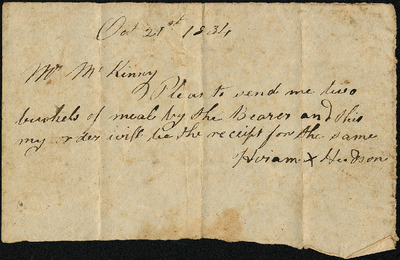 Oct 21st 1834
Mr McKinny
Pleas to send me two
bushels of meal by the Bearer and this
my order will be the receipt for the same
Hiram x Hudson